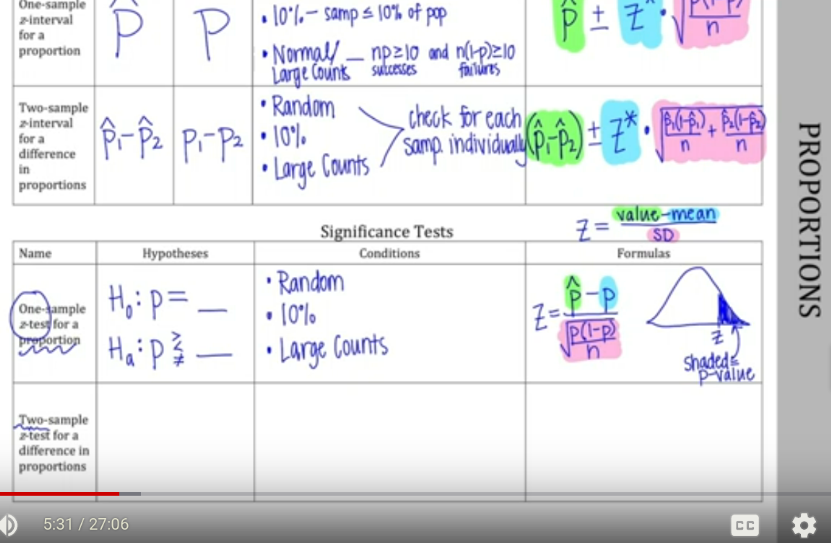 One-sample
z-interval
for a
proportion
p̂
p
• 10% – samp ≤ 10% of pop
• Normal/ — np≥10 and n(1-p)≥10
Large Counts successes failures
p̂ ± z* · √(p̂(1-p̂)/n)
Two-sample
z-interval
for a
difference
in
proportions
p̂₁-p̂₂
p₁-p₂
• Random
• 10%
• Large Counts
check for each
samp. individually
(p̂₁-p̂₂) ± z* · √(p̂₁(1-p̂₁)/n + p̂₂(1-p̂₂)/n)
PROPORTIONS
Significance Tests
z = value-mean
SD
Name Hypotheses Conditions Formulas
One-sample
z-test for a
proportion
H₀: p = __
Hₐ: p ≷≠ __
• Random
• 10%
• Large Counts
z = p̂-p
√(p(1-p)/n)
z
shaded=
p-value
Two-sample
z-test for a
difference in
proportions
5:31 / 27:06
CC